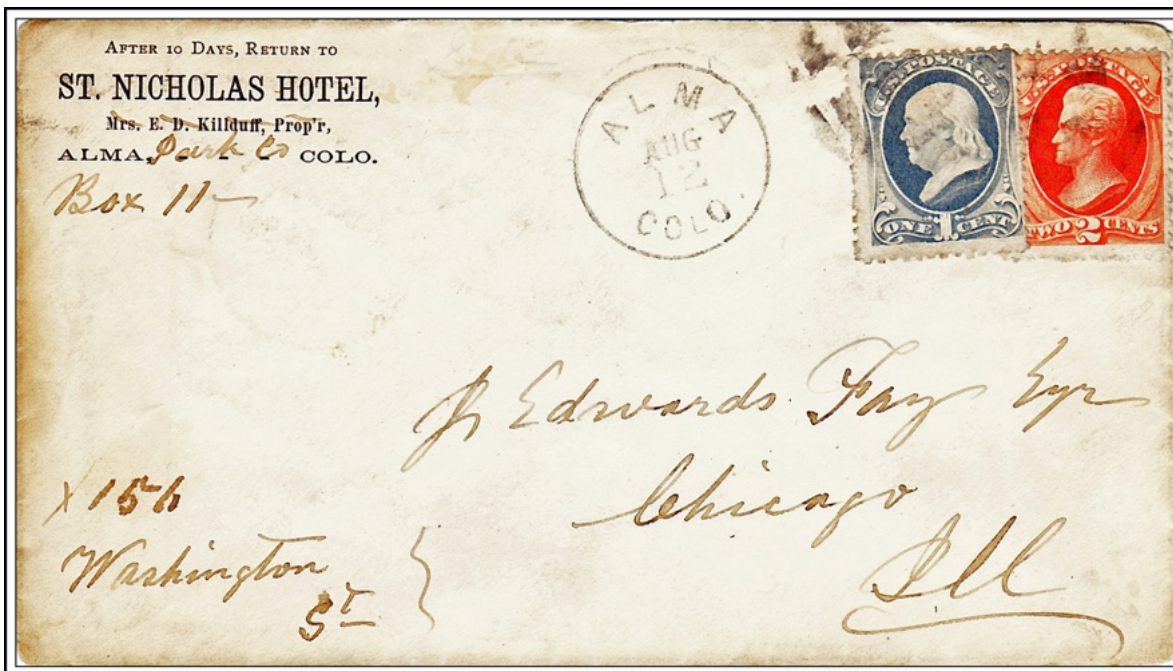 AFTER 10 DAYS, RETURN TO
ST. NICHOLAS HOTEL,
Mrs. E. D. Killduff, Prop'r,
ALMA, Park Co COLO.
Box 11
ALMA
AUG
12
COLO.
U.S. POSTAGE
ONE 1 CENT
U.S. POSTAGE
TWO 2 CENTS
Edwards Fay
Chicago
Ill
Washington
St